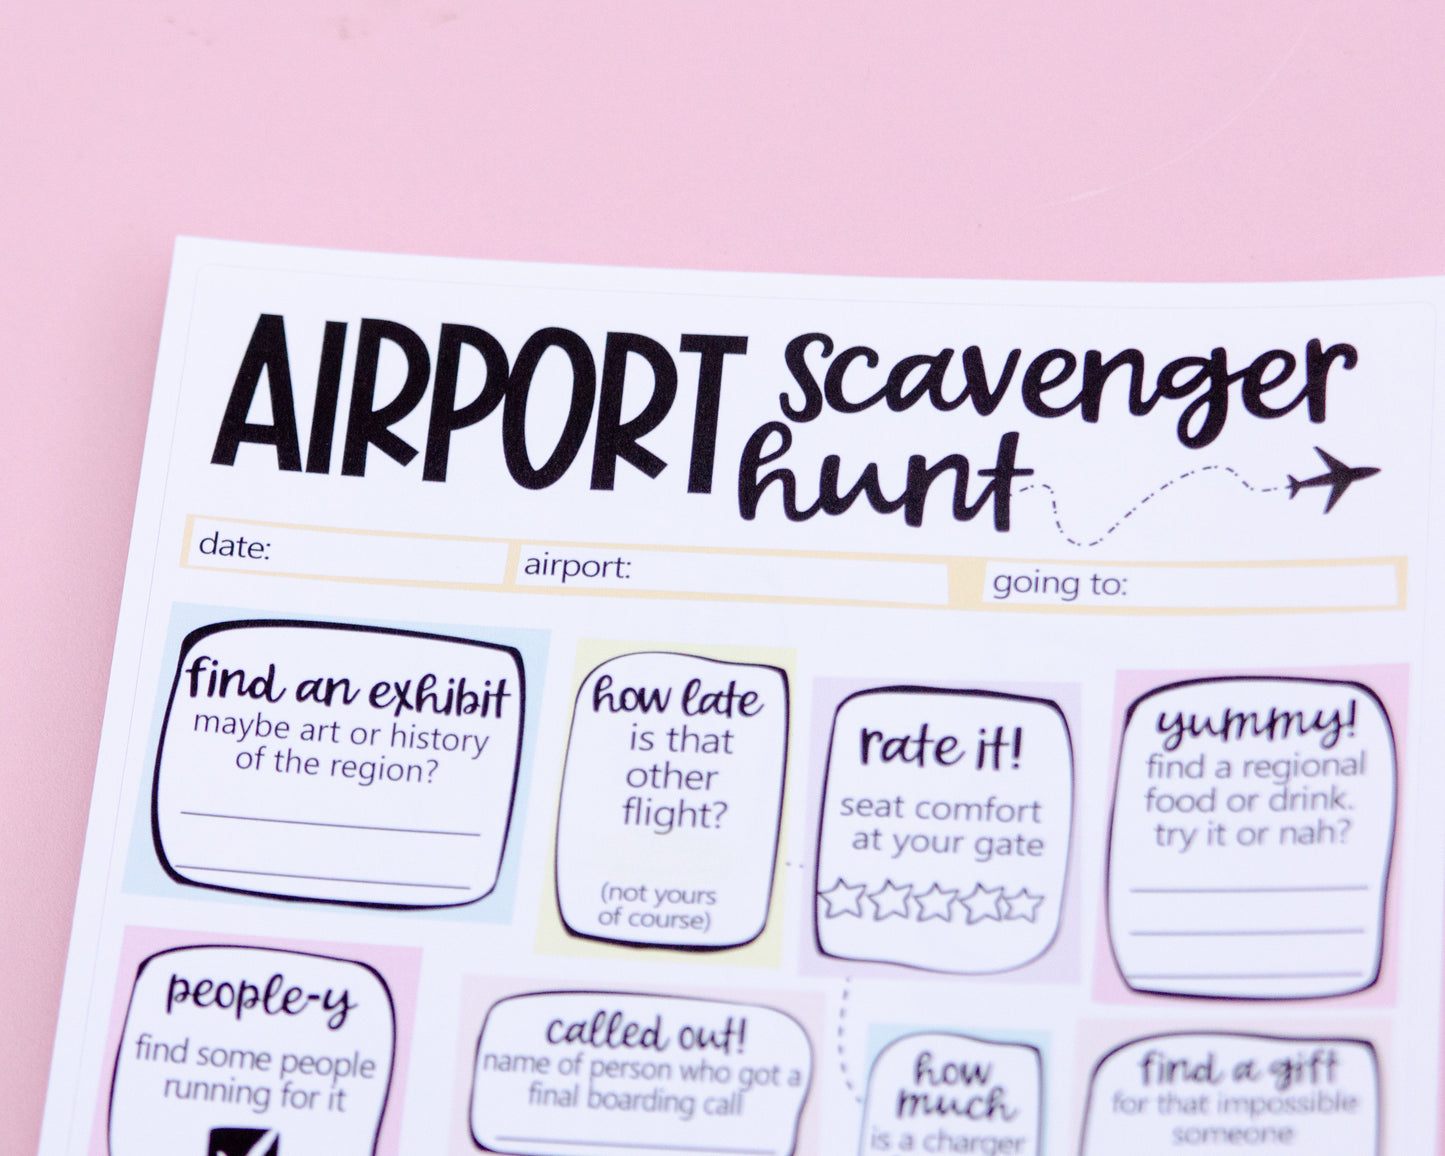 AIRPORT scavenger
hunt
date:
airport:
going to:
find an exhibit
maybe art or history
of the region?
how late
is that
other
flight?
(not yours
of course)
rate it!
seat comfort
at your gate
yummy!
find a regional
food or drink.
try it or nah?
people-y
find some people
running for it
called out!
name of person who got a
final boarding call
how
much
is a charger
find a gift
for that impossible
someone